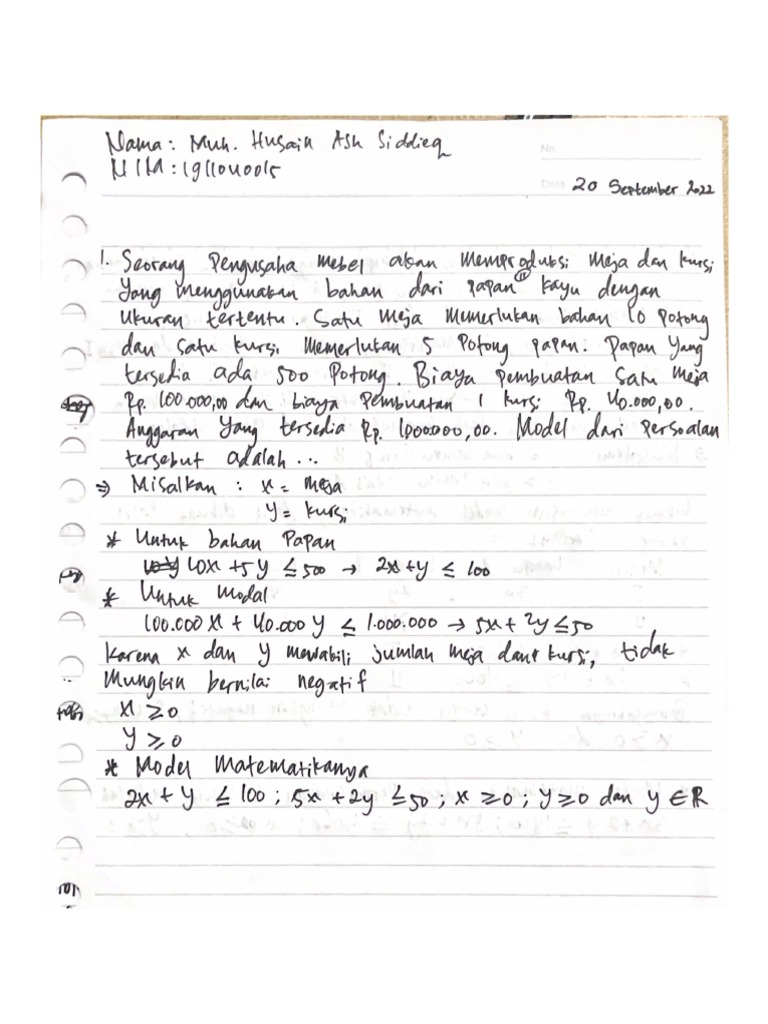 Nama : Muh. Husain Ash Siddieq
NIM : 1911040015
No.
Date 20 September 2022
1. Seorang Pengusaha mebel akan memproduksi meja dan kursi
yang menggunakan bahan dari papan kayu dengan
Ukuran tertentu. Satu meja memerlukan bahan 10 Potong
dan satu kursi memerlukan 5 Potong papan. Papan yang
tersedia ada 500 Potong. Biaya pembuatan satu meja
Rp. 100.000,00 dan biaya Pembuatan 1 kursi Rp. 40.000,00.
Anggaran yang tersedia Rp. 1000.000,00. Model dari Persoalan
tersebut adalah ...
⇒ Misalkan : x = meja
y = kursi
* Untuk bahan Papan
10x + 5y ≤ 500 → 2x + y ≤ 100
* Untuk Modal
100.000 x + 40.000 y ≤ 1.000.000 → 5x + 2y ≤ 50
Karena x dan y mewakili jumlah meja dan kursi, tidak
Mungkin bernilai negatif
x ≥ 0
y ≥ 0
* Model Matematikanya
2x + y ≤ 100 ; 5x + 2y ≤ 50 ; x ≥ 0 ; y ≥ 0 dan y ∈ R